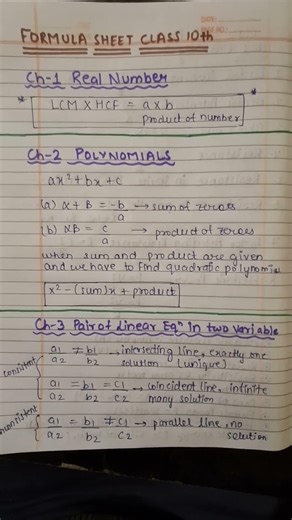 DATE:
FORMULA SHEET CLASS 10th
Ch-1 Real Number
* LCM X HCF = a x b *
product of number
Ch-2 POLYNOMIALS
ax² + bx + c
(a) α + β = -b/a → sum of zeroes
(b) αβ = c/a → product of zeroes
when sum and product are given
and we have to find quadratic polynomia
x² - (sum)x + product
Ch-3 Pair of Linear Eqⁿ in two variable
consistent
a1/a2 ≠ b1/b2 → interseding line, exactly one
solution (unique)
a1/a2 = b1/b2 = c1/c2 → coincident line, infinite
many solution
a1/a2 = b1/b2 ≠ c1/c2 → parallel line, no
solution